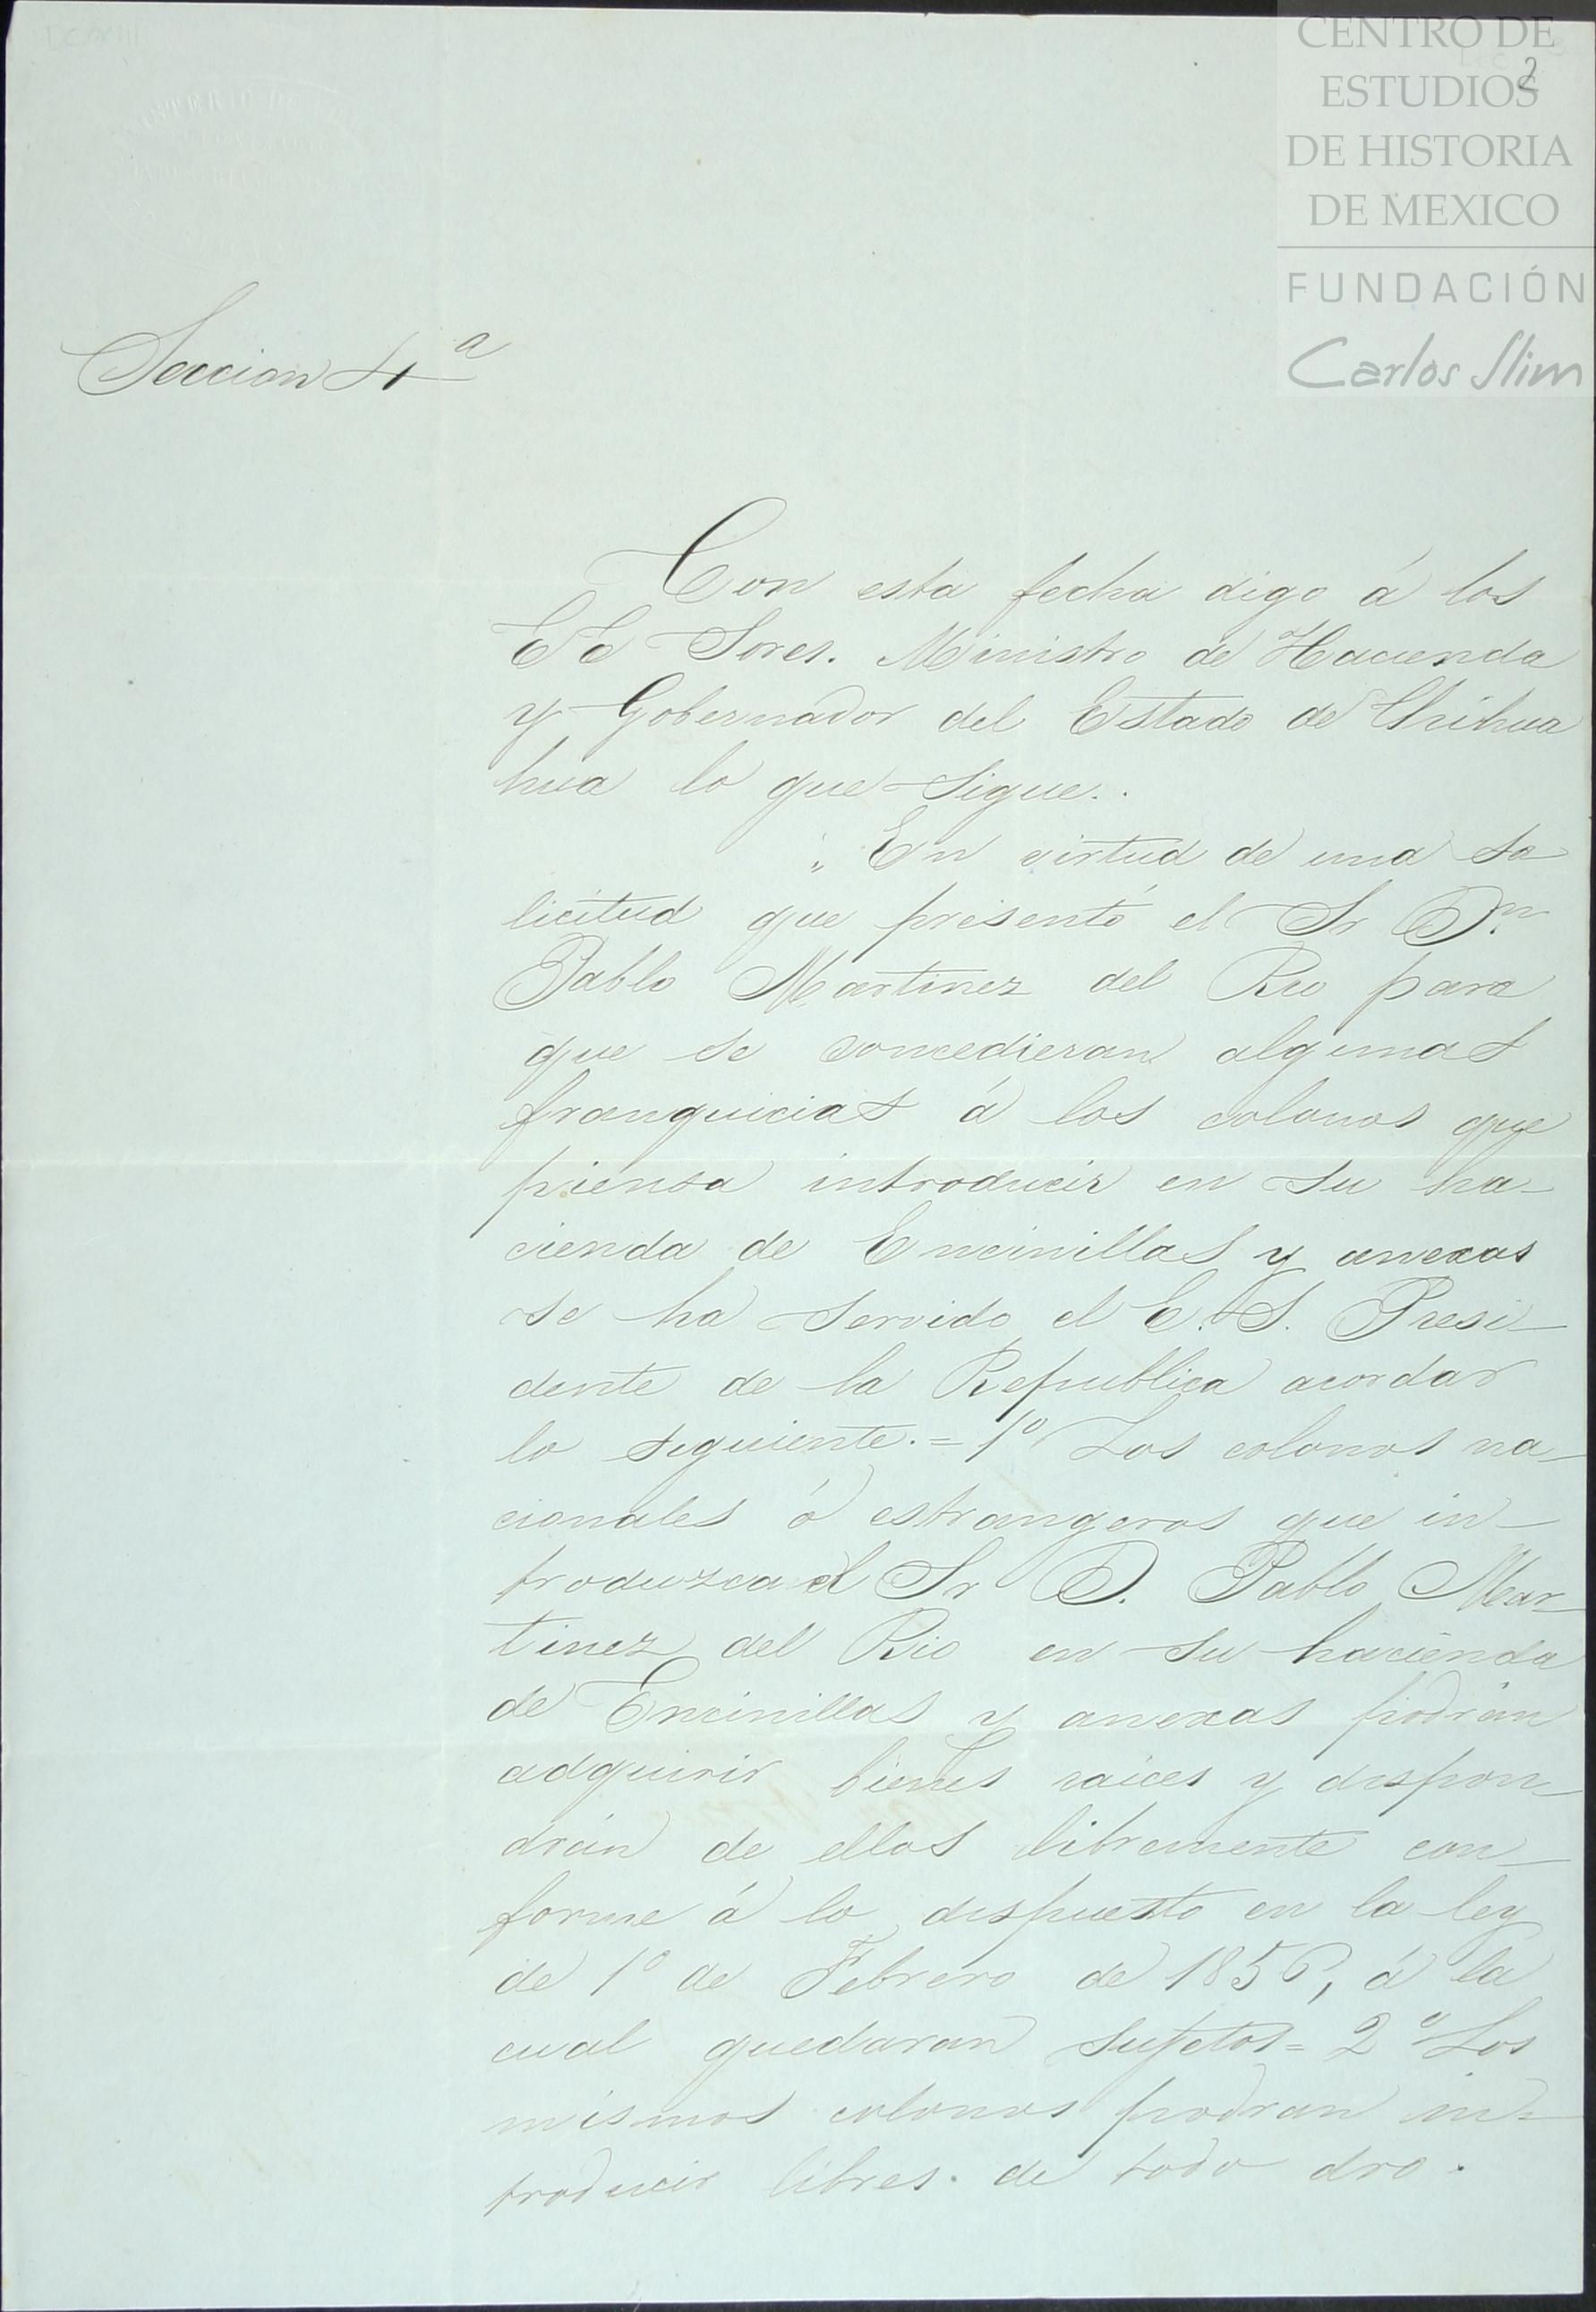 CENTRO DE
ESTUDIOS
DE HISTORIA
DE MEXICO
FUNDACIÓN
Carlos Slim
2
Seccion 4a
Con esta fecha digo á los
EE Sores. Ministro de Hacienda
y Gobernador del Estado de Chihua
hua lo que sigue..
"En virtud de una so
licitud que presentó el Sr Dn.
Pablo Martinez del Rio para
que se concedieran algunas
franquicias á los colonos que
piensa introducir en su ha-
cienda de Encinillas y anexas
se ha servido el E. S. Presi-
dente de la Republica acordar
lo siguiente.=1º Los colonos na-
cionales ó estrangeros que in-
troduzca el Sr D. Pablo Mar-
tinez del Rio en su hacienda
de Encinillas y anexas podrán
adquirir bienes raices y dispon-
drán de ellos libremente con-
forme á lo dispuesto en la ley
de 1º de Febrero de 1856, á la
cual quedaran sujetos=2º Los
mismos colonos podran in-
troducir libres de todo dro.